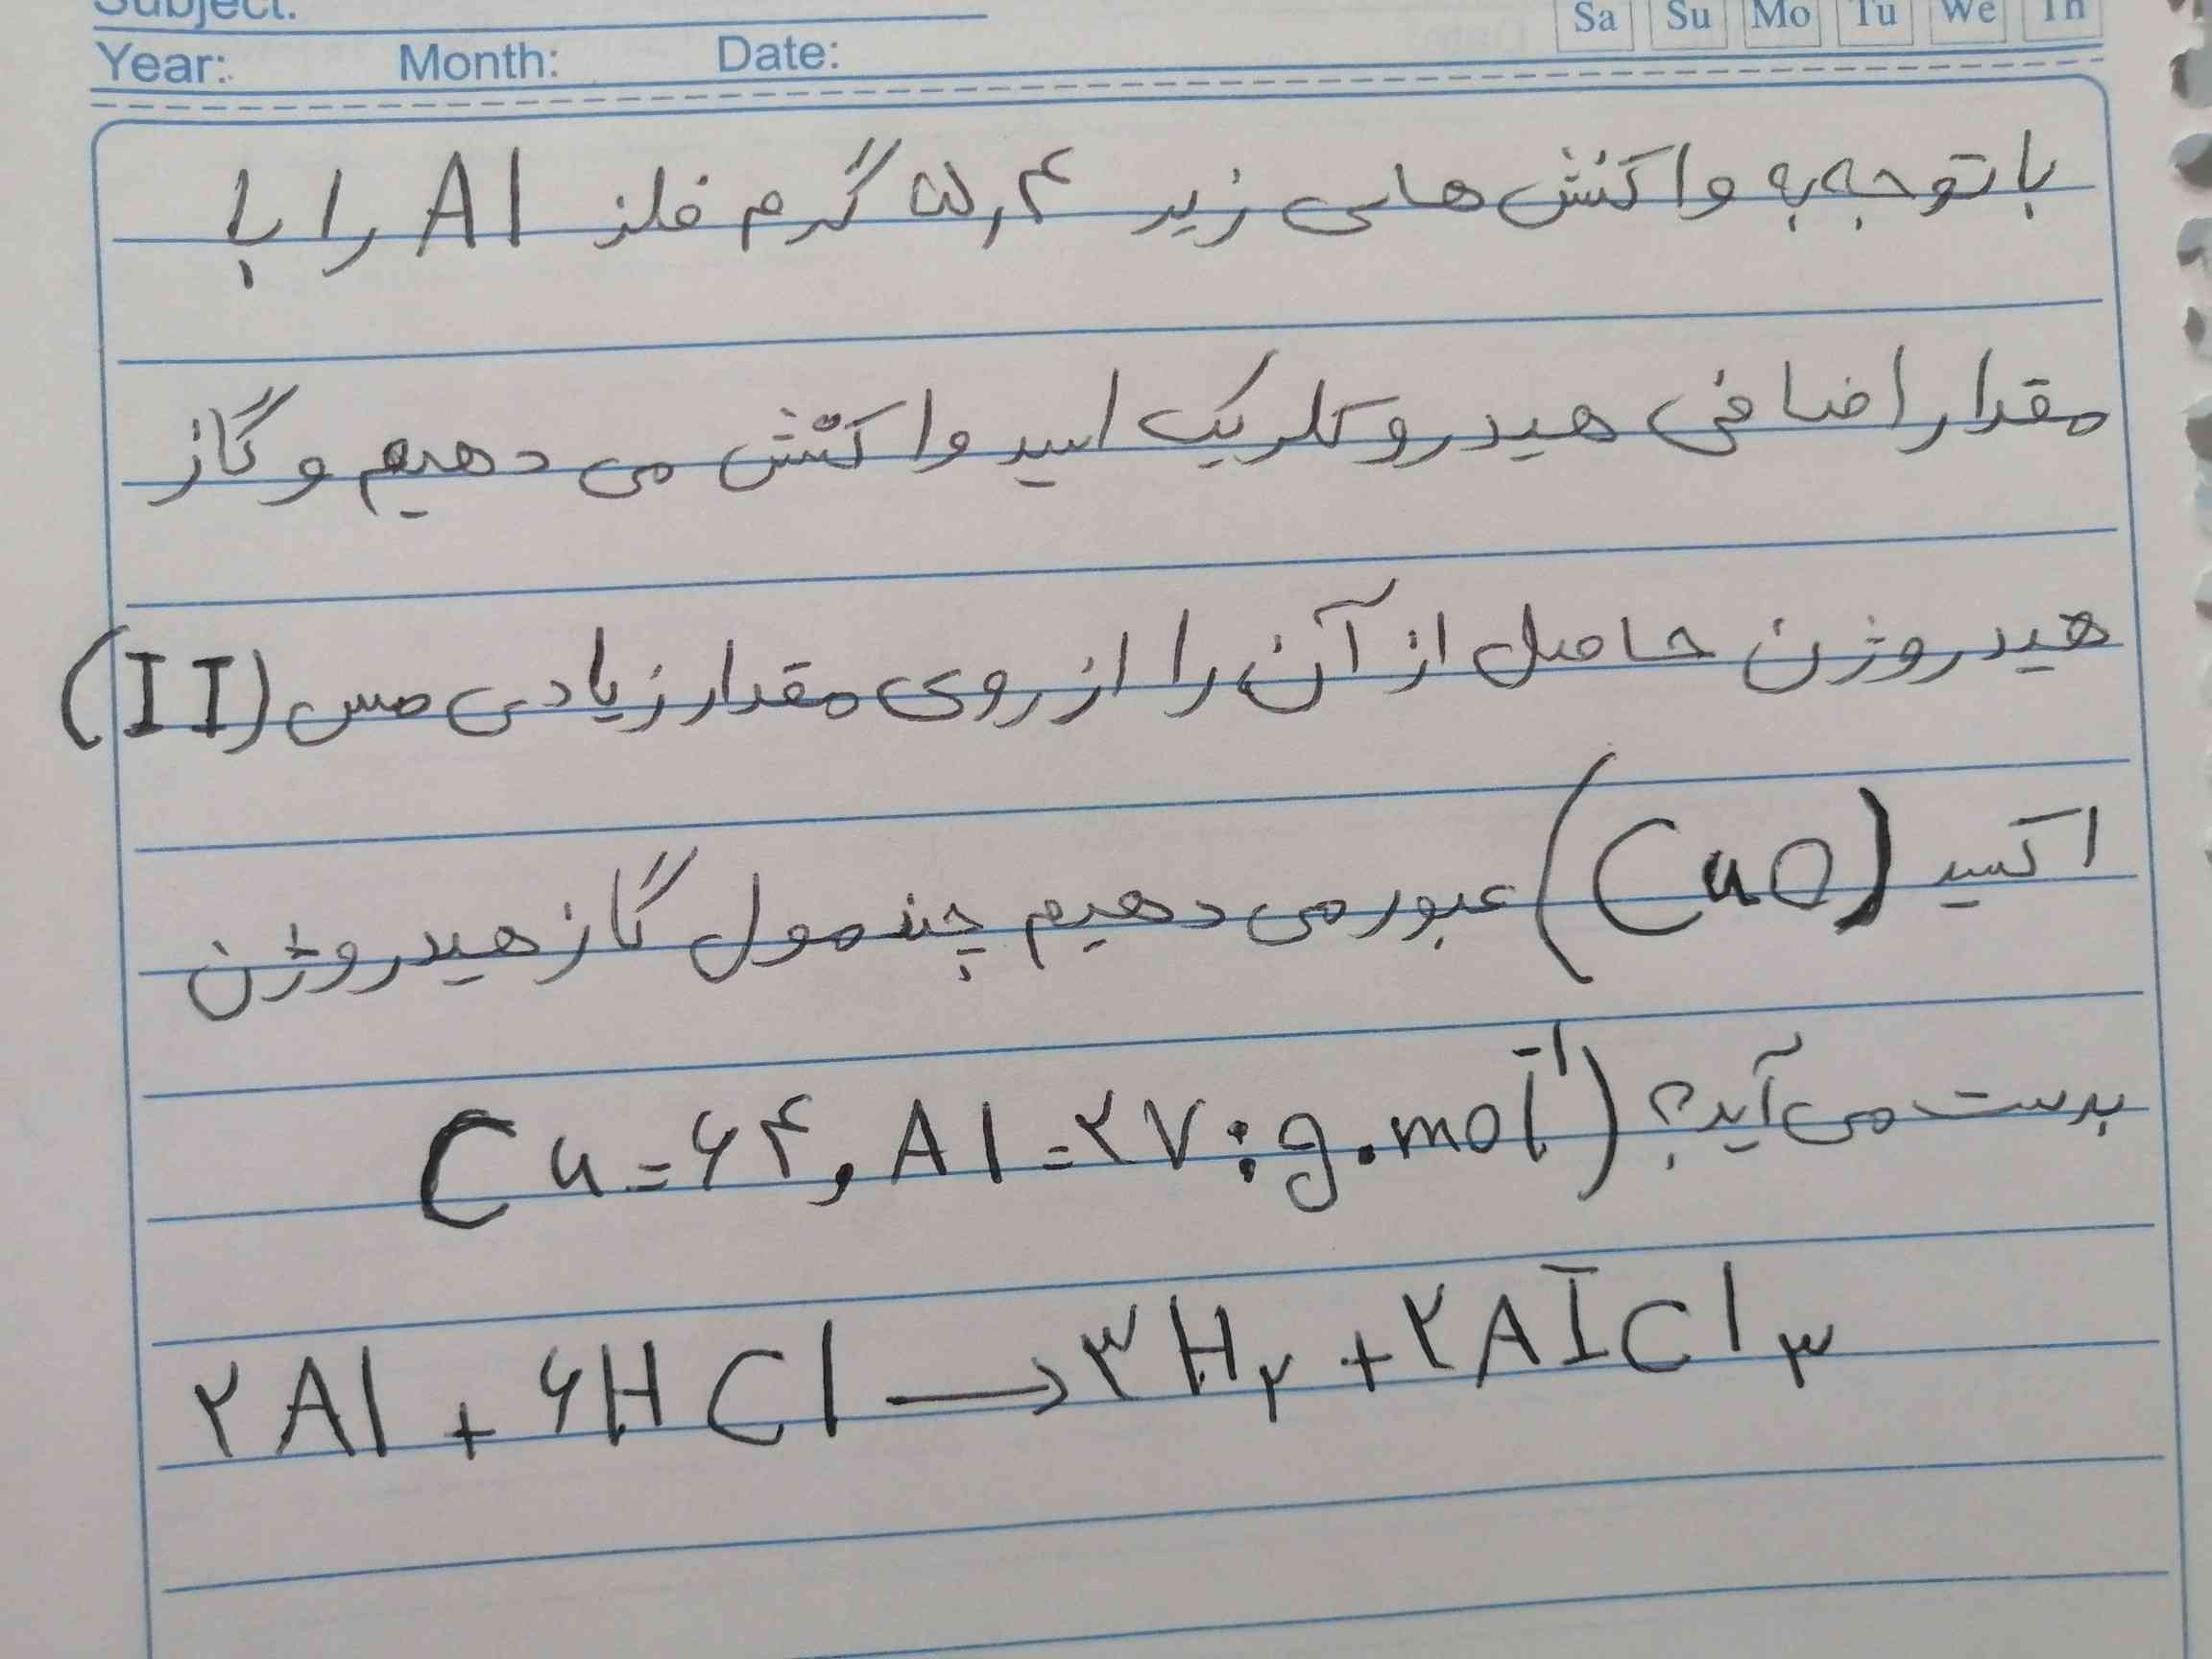 Subject:
Sa Su Mo Tu We Th
Year: Month: Date:
با توجه به واکنش های زیر ۵٫۴ گرم فلز Al را با
مقدار اضافی هیدروکلریک اسید واکنش می دهیم و گاز
هیدروژن حاصل از آن را از روی مقدار زیادی مس (II)
اکسید (CuO) عبور می دهیم چند مول گاز هیدروژن
بدست می آید؟ (Cu=۶۴, Al=۲۷:g.mol⁻¹
۲Al + ۶HCl → ۳H₂ + ۲AlCl₃